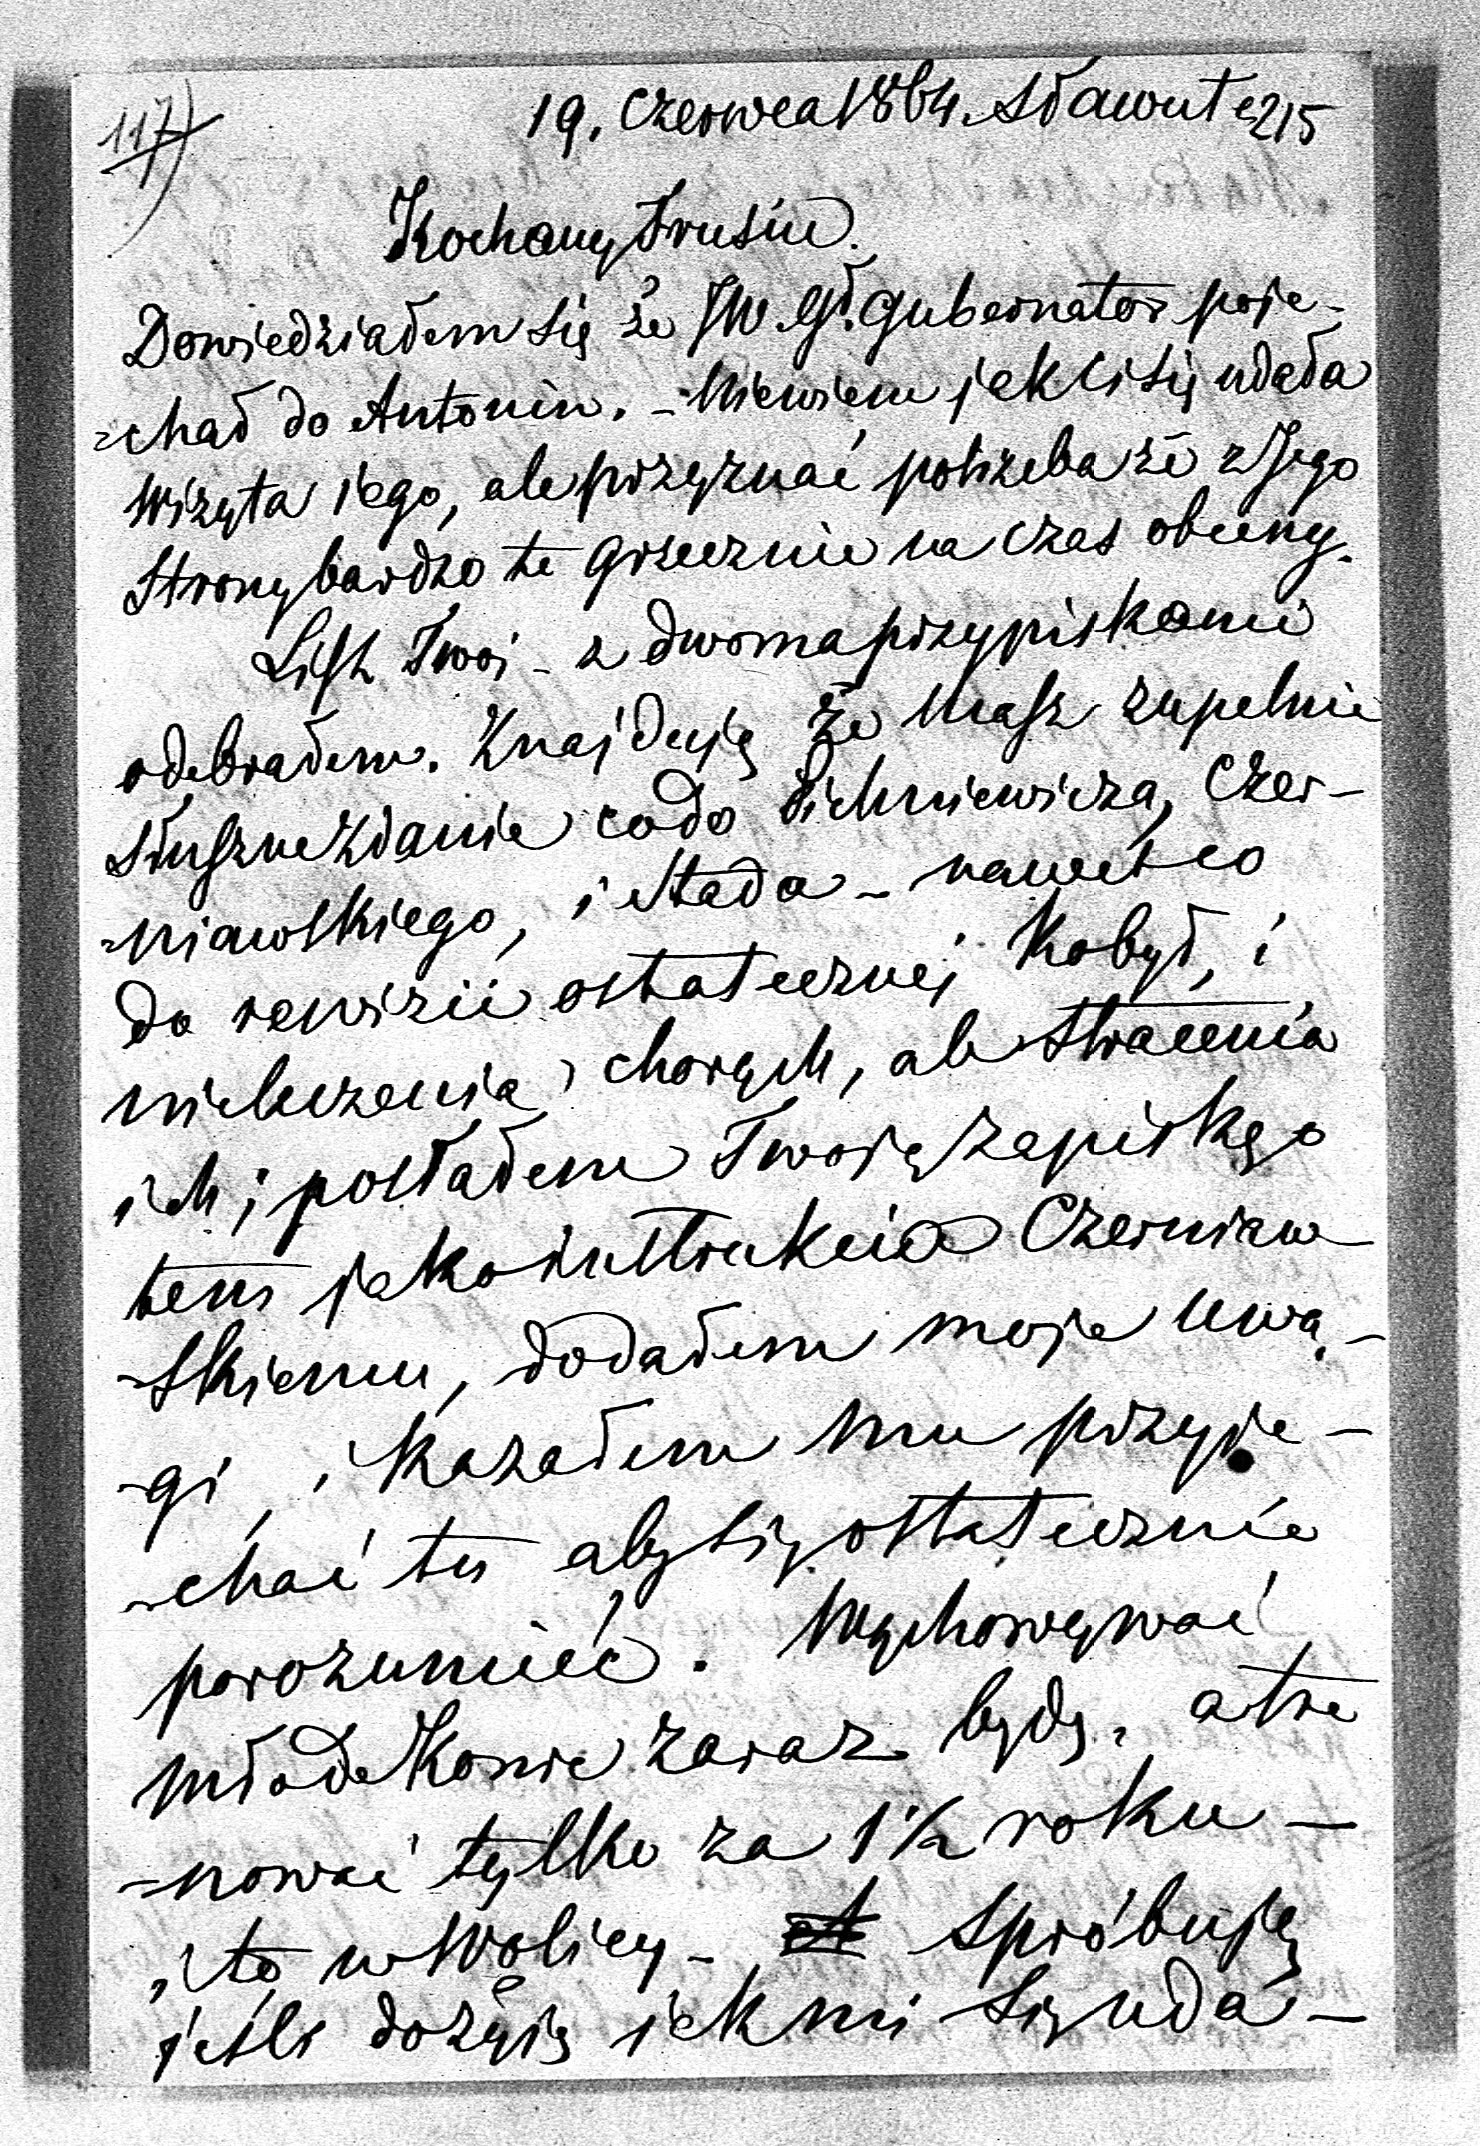 117)
19. Czerwca 1864. Sławuta 215
Kochany Frusiu.
Dowiedziałem się że JW. Gł. Gubernator poje-
=chał do Antonin. - Niewiem jak Ci się udała
wizyta iego, ale przyznać potrzeba że z Jego
Strony bardzo to grzecznie na czas obecny.
List Twoi - z dwoma przypiskami
odebrałem. Znajduję że masz zupełnie
słuszne zdanie co do Lichniewicza, Czer-
=niawskiego, i Stada - nawet co
do rewizii ostatecznej Kobył, i
nieleczenia chorych, ale stracenia
ich; posłałem Twoię zapiskę o
tem jako instrukcia Czerniaw-
-skiemu, dodałem moje uwa-
-gi, i kazałem mu przyje-
-chać tu aby się ostatecznie
porozumieć. Wychowywać
młode Konie zaraz będę, a tre
=nować tylko za 1½ roku -
i to w Wolicy - Spróbuję
jeśli dożyię iak mi się uda -